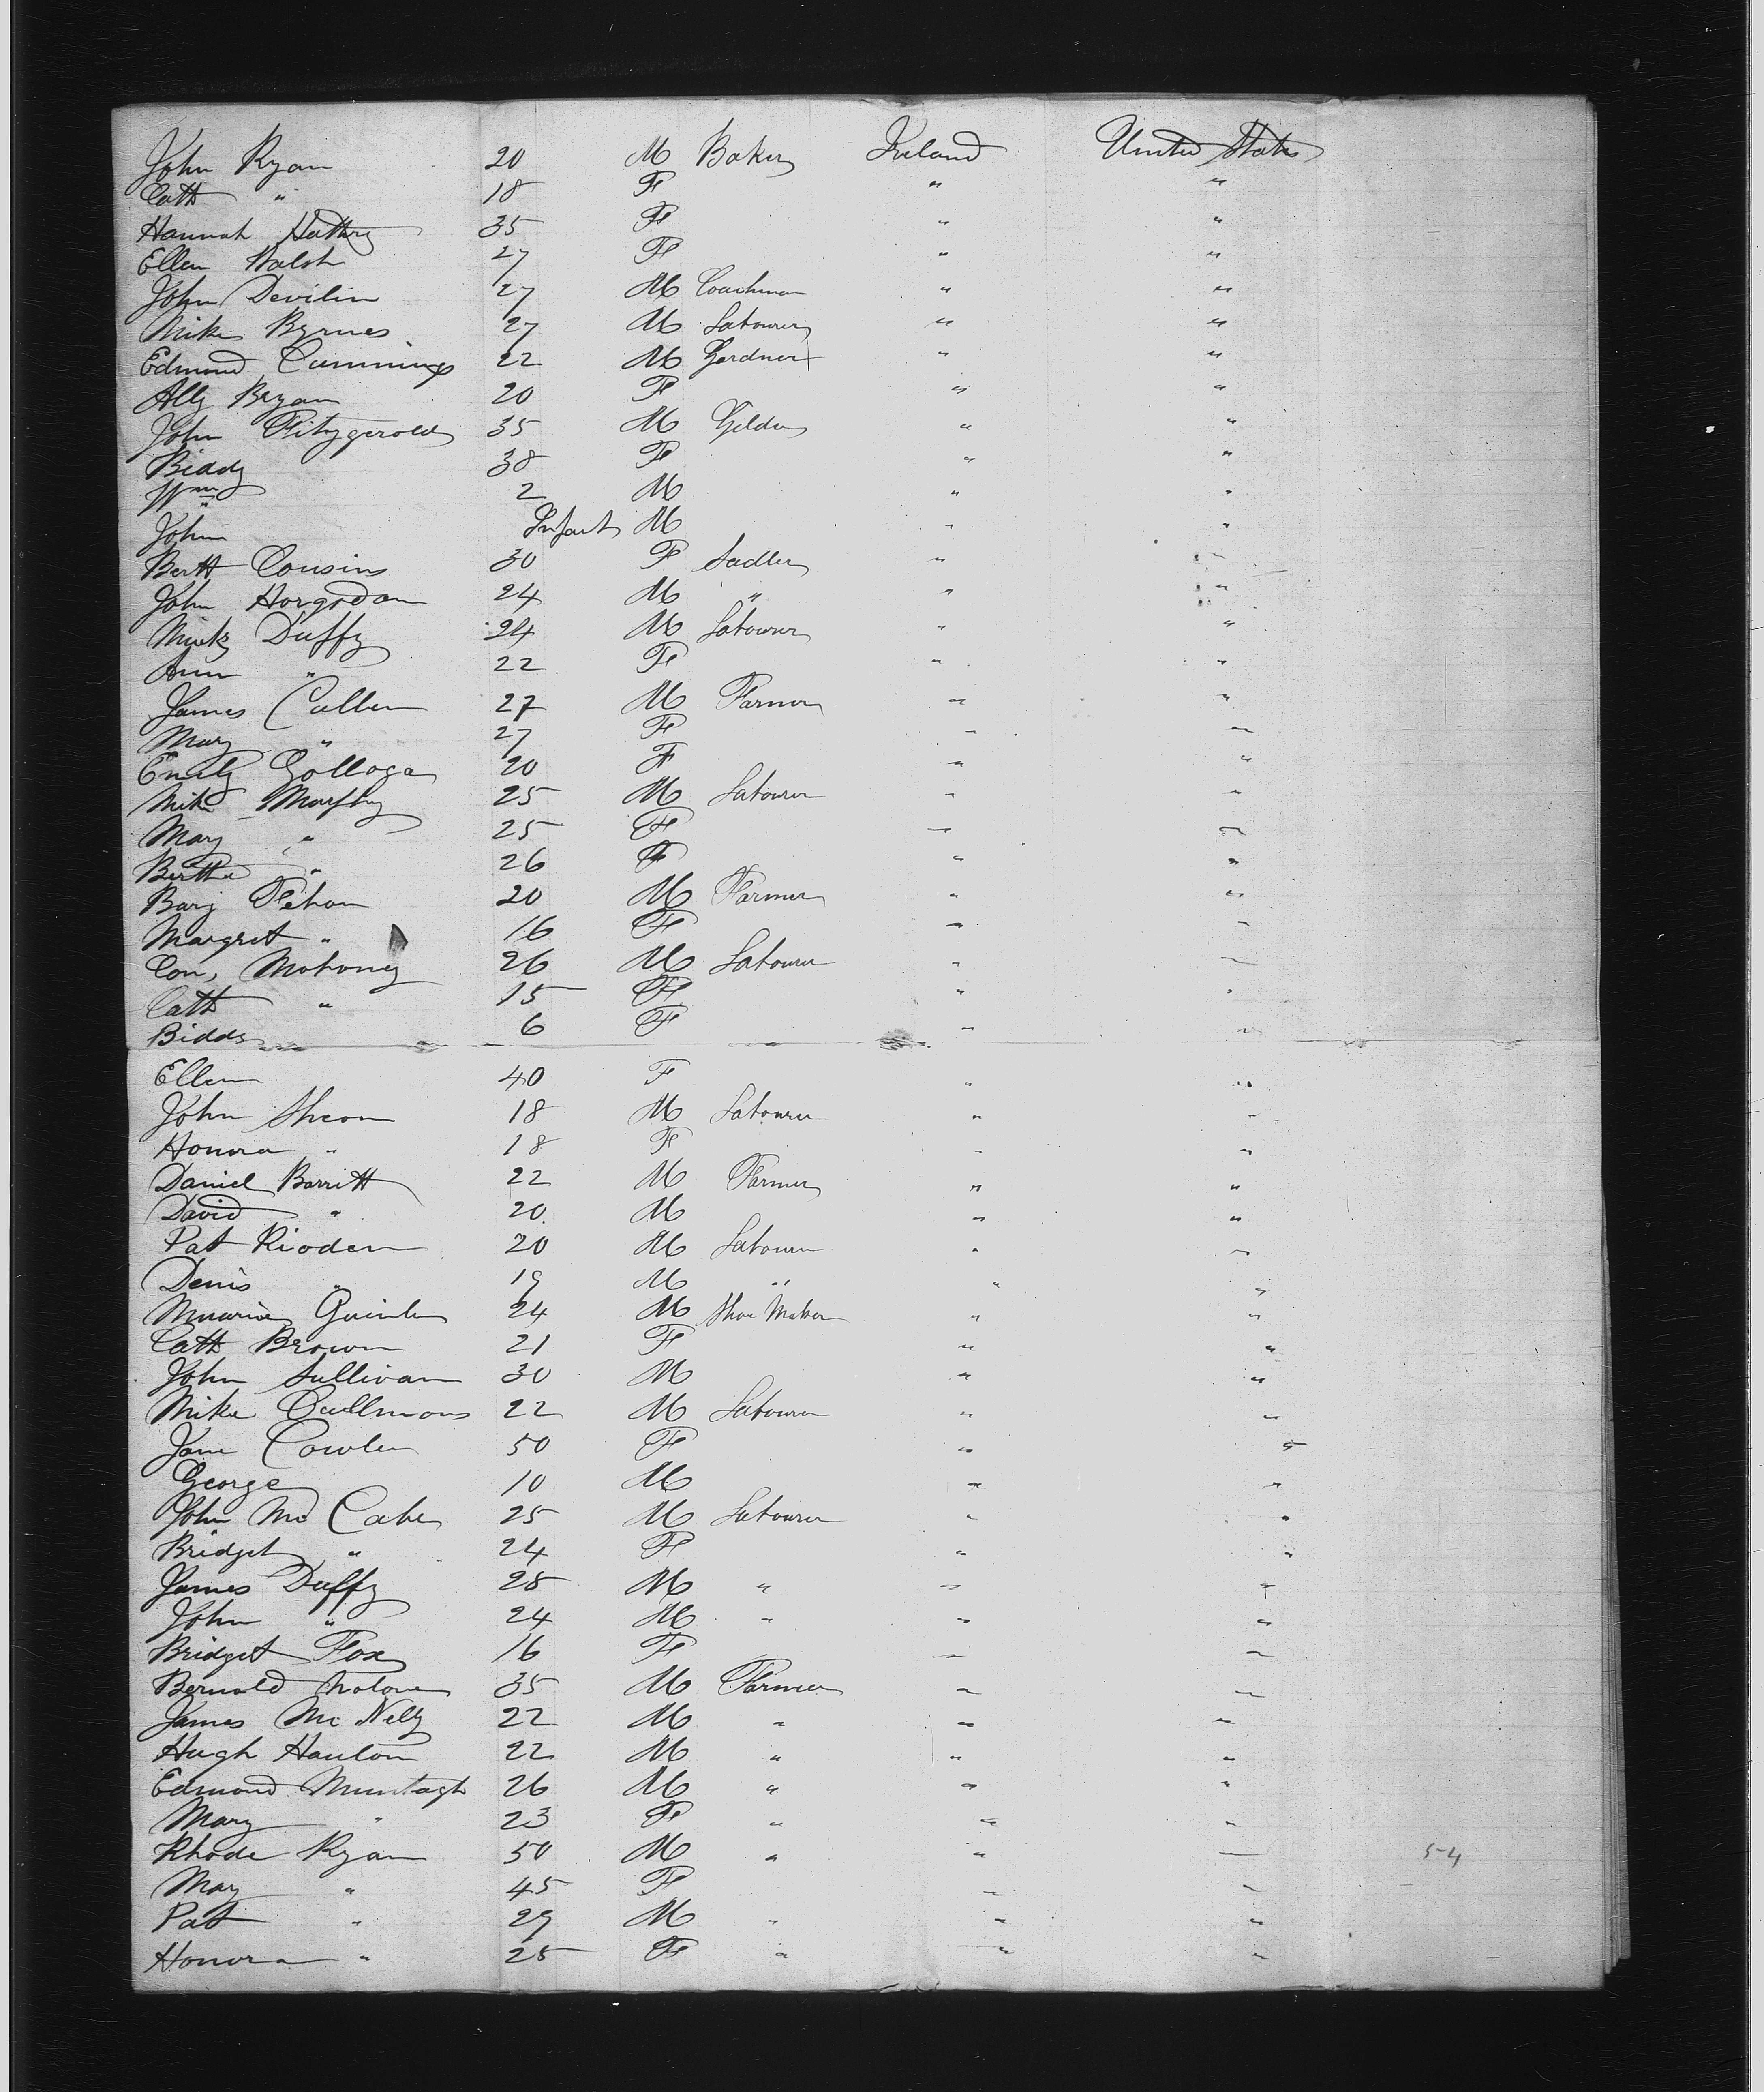 John Ryan 20 M Baker Ireland United States
Cath " 18 F " "
Hannah 35 F " "
Ellen Walsh 27 F " "
John Devilin 27 M Coachman " "
Mike Byrnes 27 M Labourer " "
Edmond Cummings 22 M Gardner " "
Ally Bryan 20 F " "
John Fitzgerald 35 M Gilder " "
Biddy 38 F " "
Wm 2 M " "
John Infant M " "
Bertt Cousins 30 F Sadler " "
John 24 M " " "
Duffy 24 M Labourer " "
Ann " 22 F " "
James Cullen 27 M Farmer " "
Mary " 27 F " "
Emily Golloga 20 F " "
Mike Murphy 25 M Labourer " "
Mary " 25 F " "
Bertha " 26 F " "
20 M Farmer " "
Margret " 16 F " "
Con, Mahoney 26 M Labourer " "
Cath " 15 F " "
Biddy 6 F " "
Ellen 40 F " "
John Shean 18 M Labourer " "
Honora " 18 F " "
Daniel Barritt 22 M Farmer " "
David " 20 M " "
Pat Rioden 20 M Labourer " "
Denis " 19 M " " "
Quinlen 24 M Shoe Maker " "
Cath Brown 21 F " "
John Sullivan 30 M " "
Mike Cullmons 22 M Labourer " "
Jane Cowlen 50 F " "
George 10 M " "
John Mc Cabe 25 M Labourer " "
Bridget " 24 F " "
James Duffy 28 M " " "
John " 24 M " " "
Bridget Fox 16 F " "
Bernald 35 M Farmer " "
James Mc Nelly 22 M " " "
Hugh Hanlon 22 M " " "
Edmond Murtagh 26 M " " "
Mary " 23 F " " "
Rhode Ryan 50 M " " " 54
Mary " 45 F " "
Pat " 29 M " " "
Honora " 25 F " " "